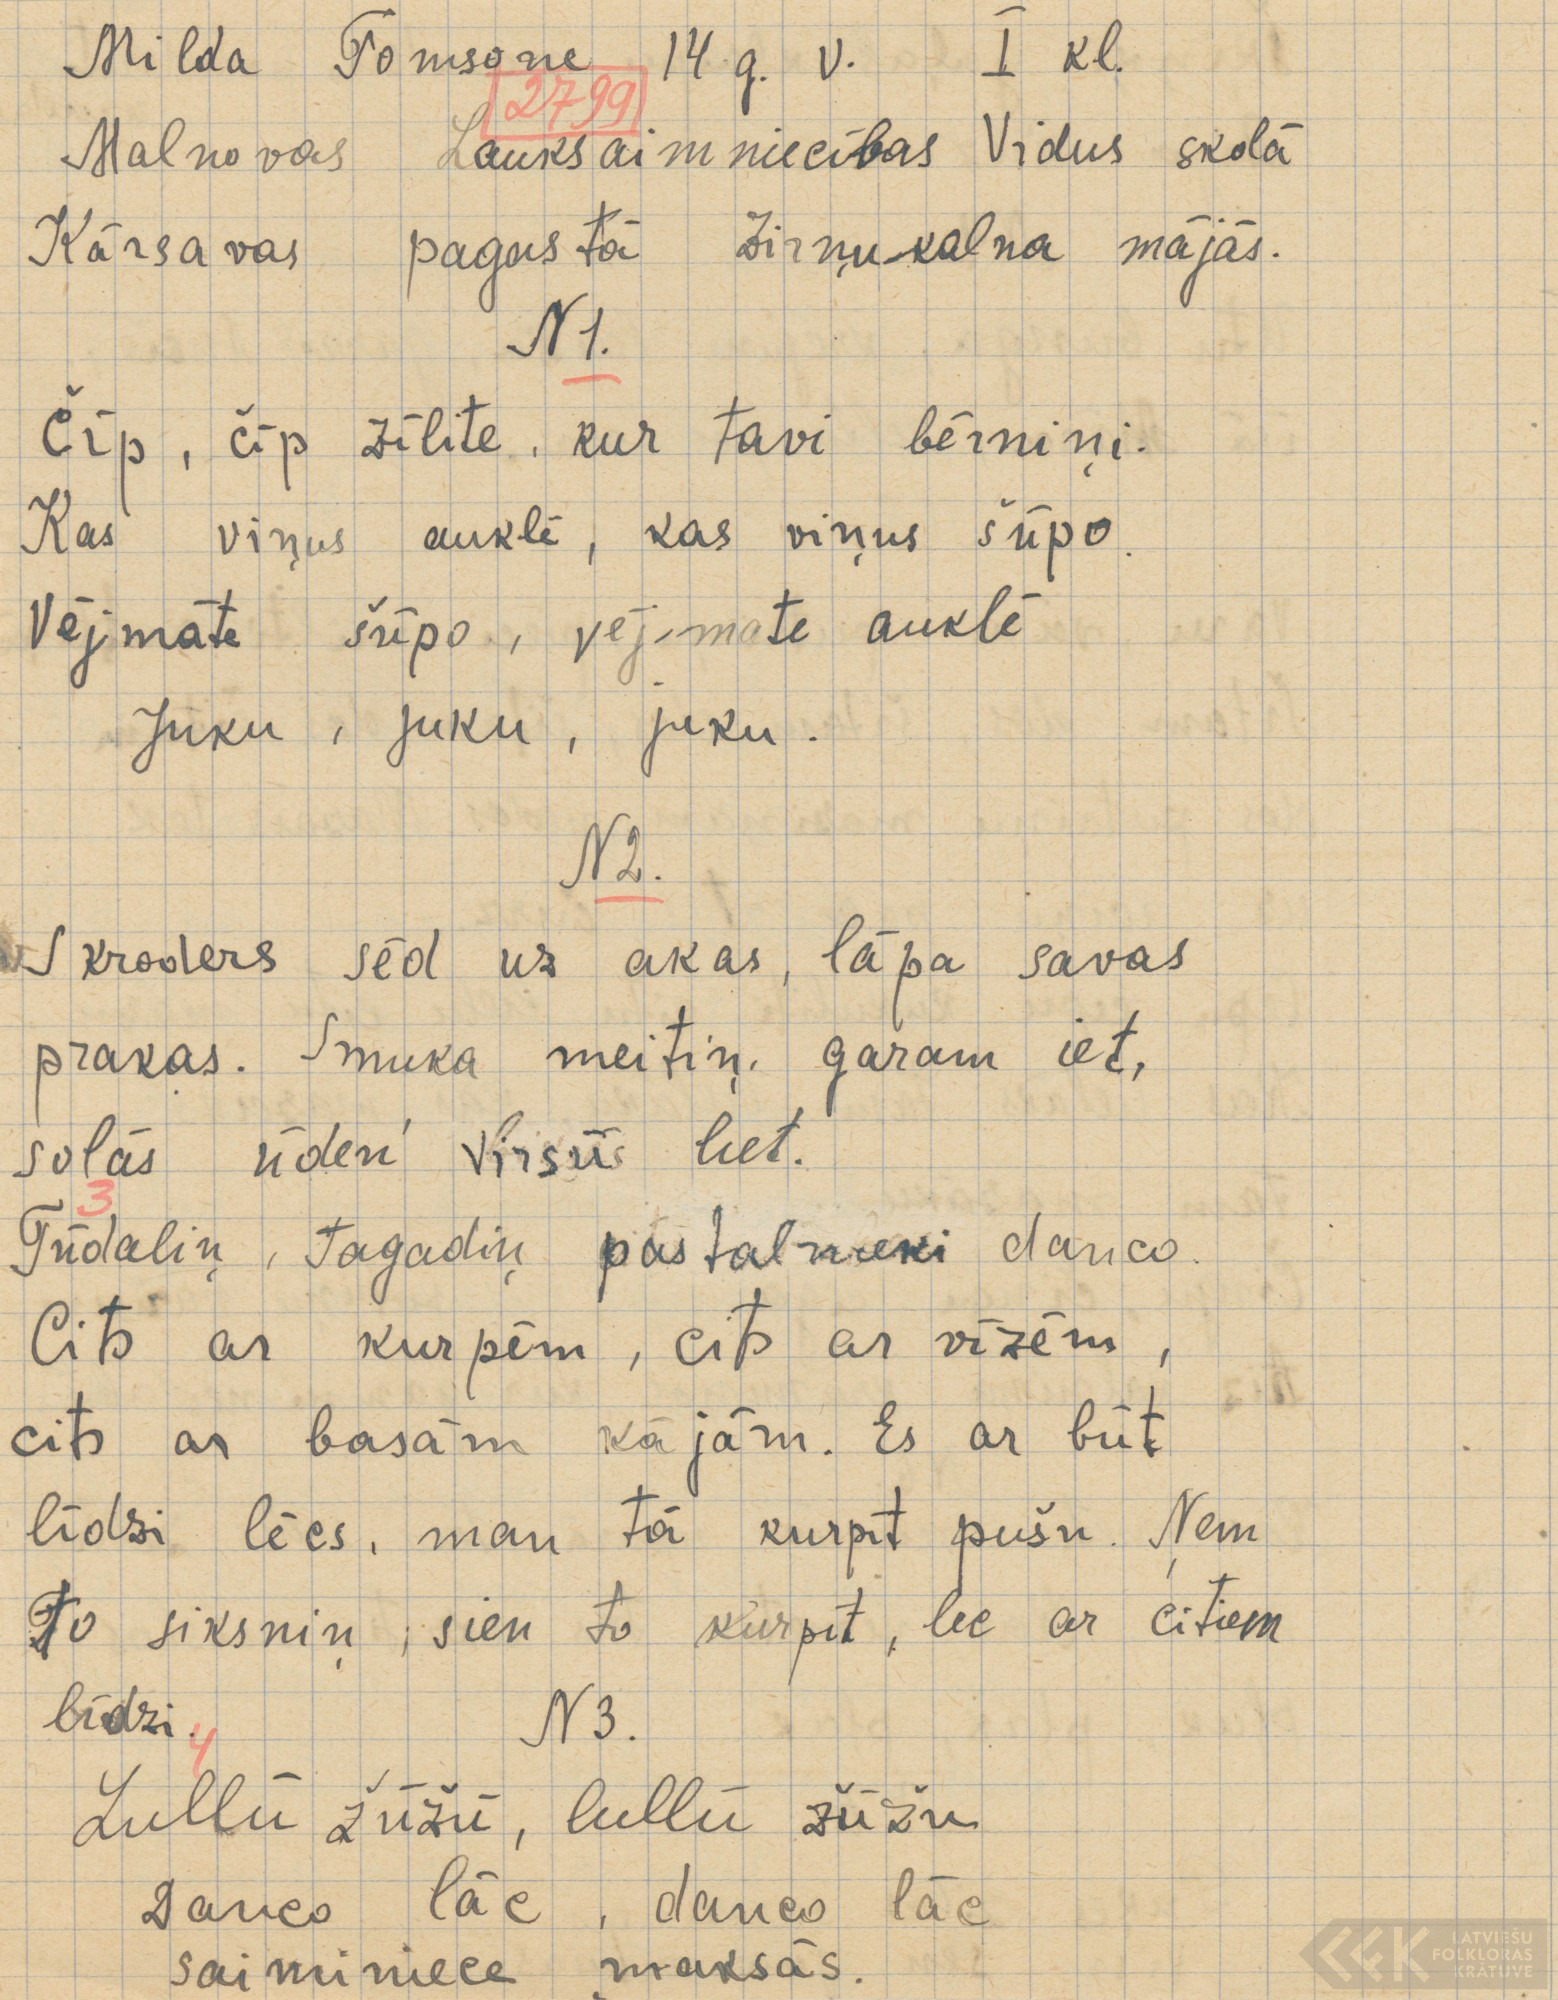 Milda Tomsone 14 g. v. I kl.
2799
Malnovas Lauksaimniecības Vidus skolā
Kārsavas pagastā Zirņu-kalna mājās.
N 1.
Čīp, čīp zīlīte, kur tavi bērniņi.
Kas viņus auklē, kas viņus šūpo.
Vējmāte šūpo, vēj-māte auklē
Jūku, juku, juku.
N 2.
Skroders sēd uz akas, lāpa savas
prakas. Smuka meitiņ, garam iet,
solās ūden' virsū liet.
3
Tūdaliņ, tagadiņ pastalnieki danco.
Cits ar kurpēm, cits ar vīzēm,
cits ar basām kājām. Es ar būt
līdzi lēcs, man tā kurpīt pušu. Ņem
to siksniņ, sien to kurpīt, lec ar citiem
līdzi.
N 3.
4
Lullū žūžū, lullū žūžu
Danco lāc, danco lāc
saiminiece maksās.
LATVIEŠU
FOLKLORAS
KRĀTUVE